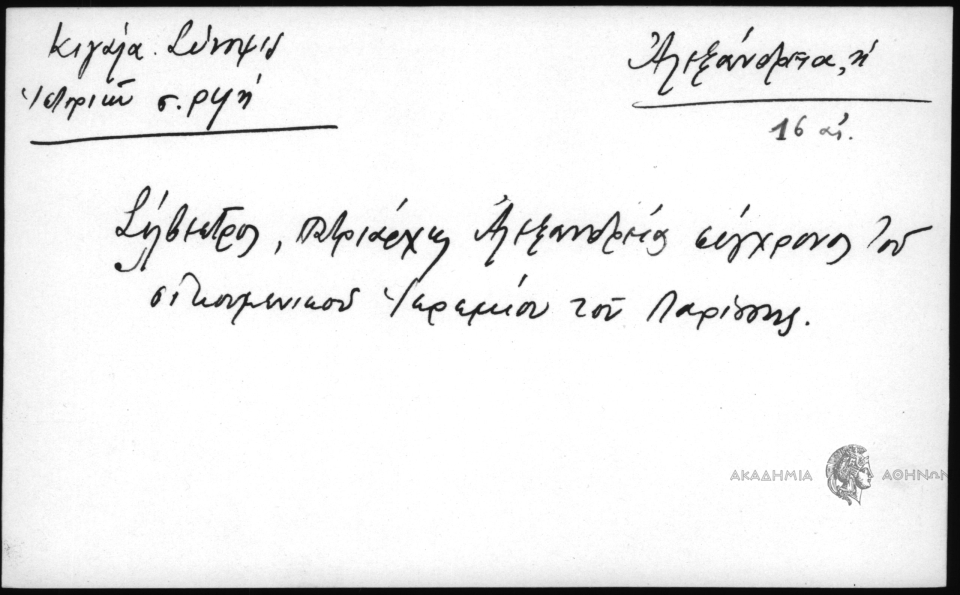 Κιγάλα. Σύνοψις
Ἱστοριῶν σ. ρμή
Ἀλεξάνδρεια, ἡ
16 αἰ.
Σίλβεστρος, Πατριάρχης Ἀλεξανδρείας σύγχρονος τοῦ
οἰκουμενικοῦ Ἱερεμίου τοῦ Λαρίσσης.
ΑΚΑΔΗΜΙΑ ΑΘΗΝΩΝ